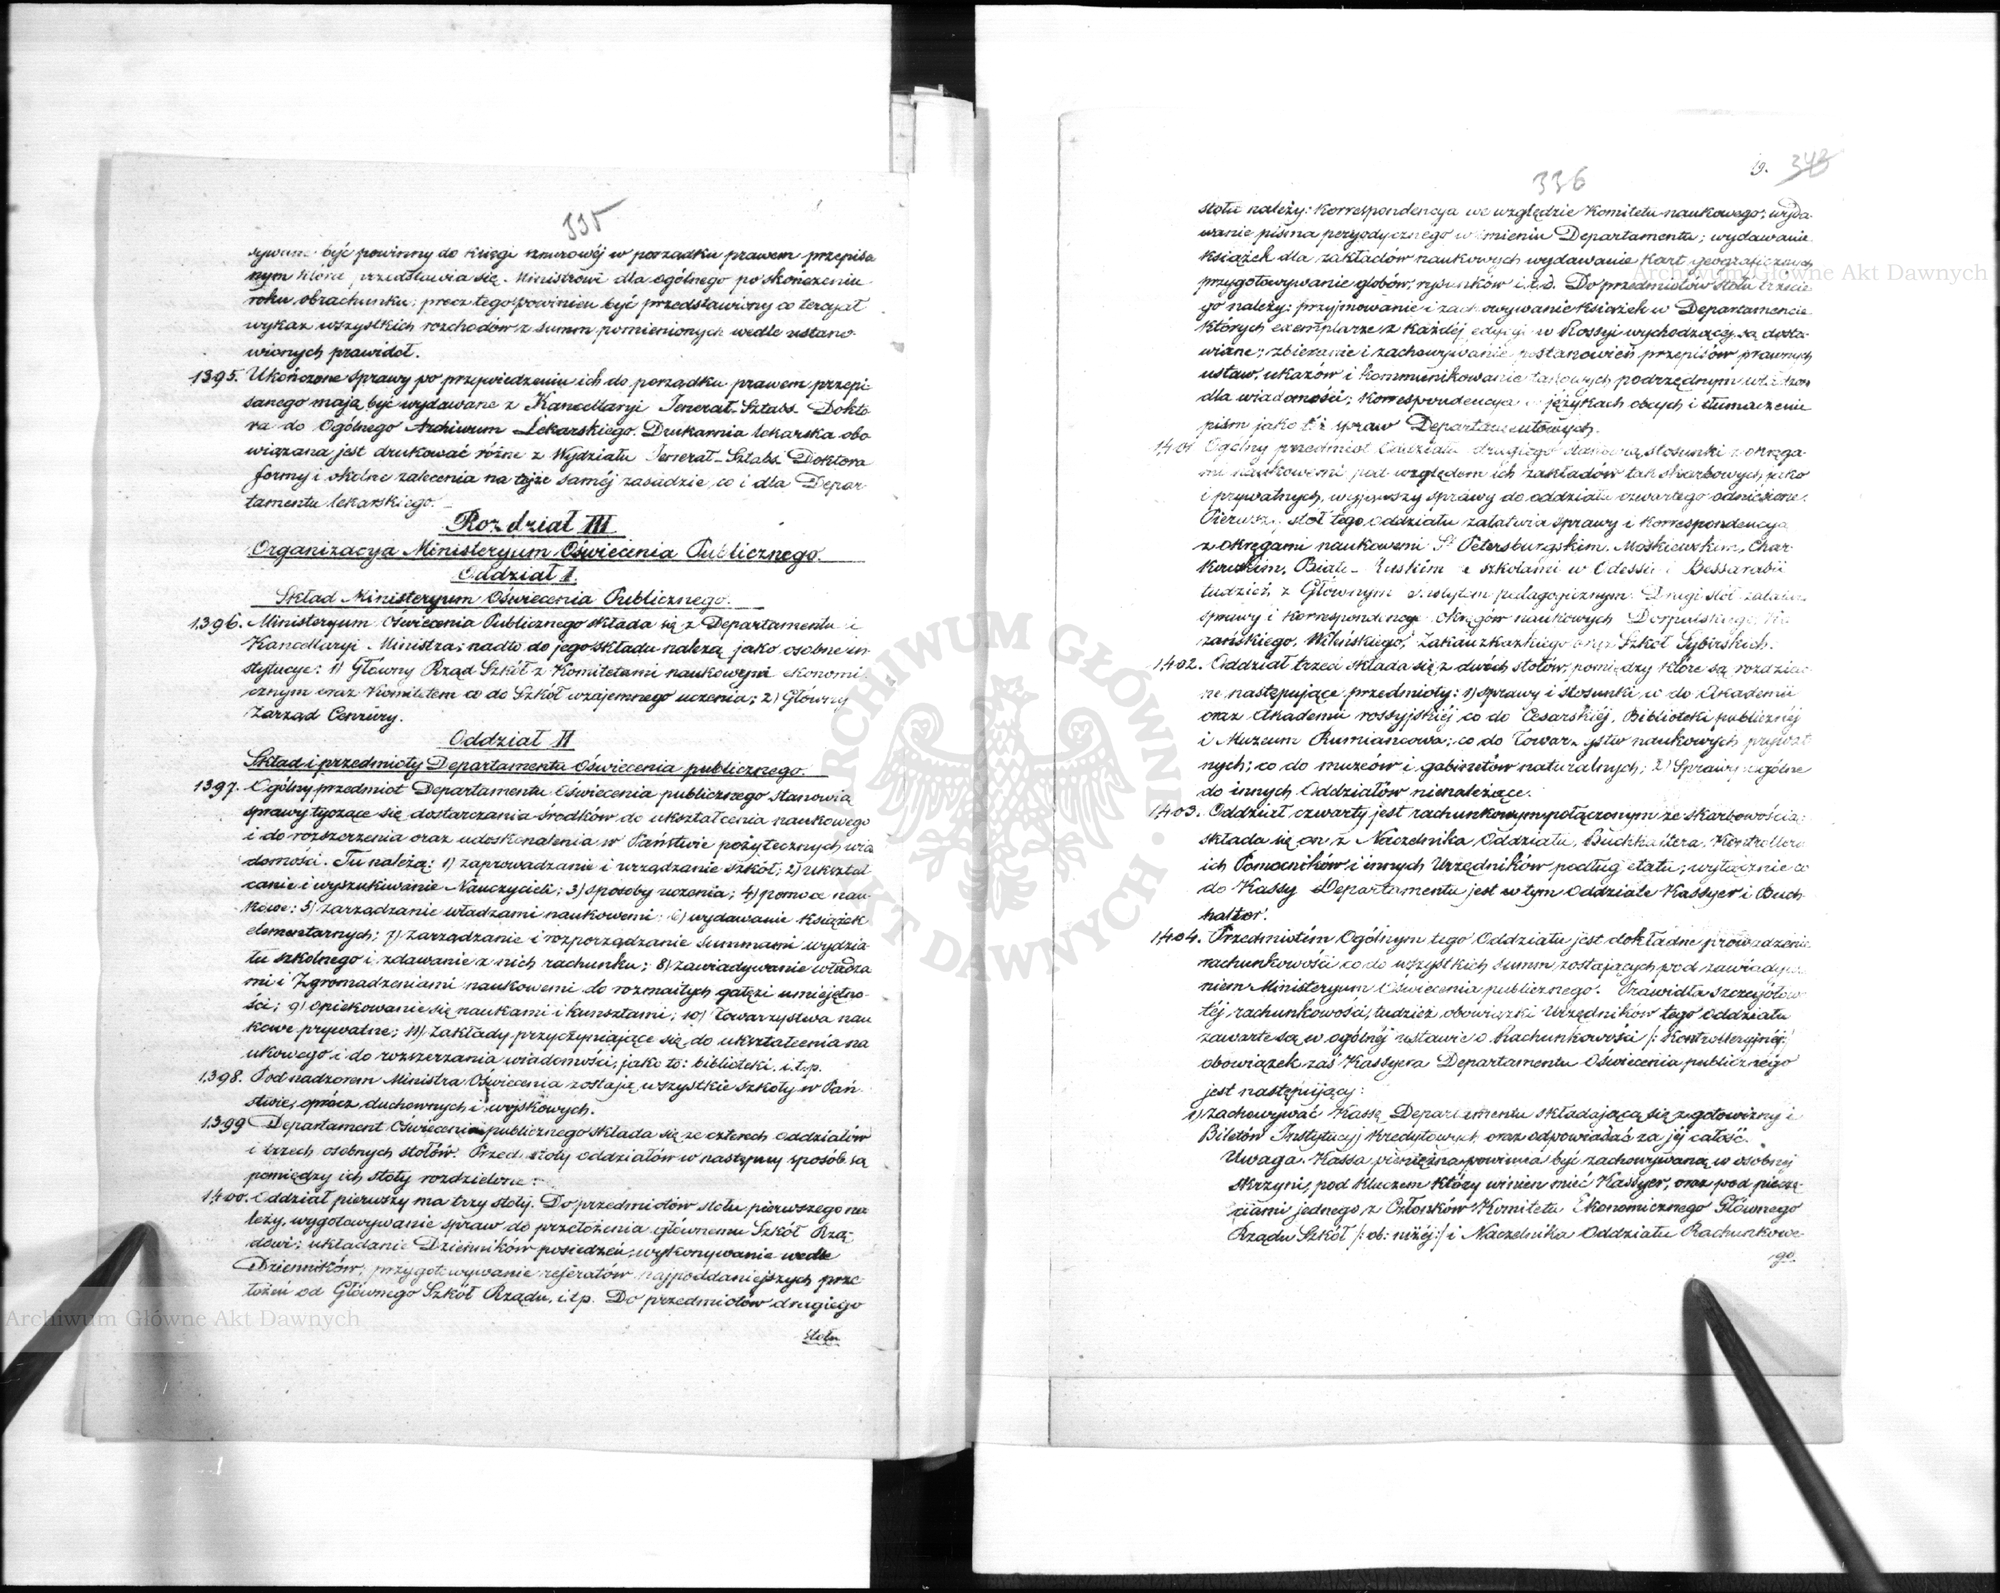 335
sywane być powinny do księgi sznurowéj w porządku prawem przepisa
nym która przedstawia się Ministrowi dla ogólnego po skończeniu
roku obrachunku; precz tego powinien być przedstawiony co tercyał
wykaz wszystkich rozchodów z summ pomienionych wedle ustano
wionych prawideł.
1395. Ukończone sprawy po przywiedzeniu ich do porządku prawem przepi
sanego mają być wydawane z Kancellaryi Jenerał-Sztabs Dokto
ra do Ogólnego Archiwum Lekarskiego. Drukarnia lekarska obo
wiązana jest drukować różne z Wydziału Jenerał-Sztabs Doktora
formy i okólne zalecenia na tejże saméj zasadzie, co i dla Depar
tamentu lekarskiego.
Rozdział III
Organizacya Ministeryum Oświecenia Publicznego.
Oddział I.
Skład Ministeryum Oświecenia Publicznego.
1396. Ministeryum Oświecenia Publicznego składa się z Departamentu i
Kancellaryi Ministra; nadto do jego składu należą jako osobne in
stytucye: 1) Główny Rząd Szkół z Komitetami naukowym ekonomi
cznym oraz Komitetem co do Szkół wzajemnego uczenia; 2) Główny
Zarząd Cenzury.
Oddział II
Skład i przedmioty Departamentu Oświecenia publicznego.
1397. Ogólny przedmiot Departamentu Oświecenia publicznego stanowią
sprawy tyczące się dostarczania środków do ukształcenia naukowego
i do rozszerzenia oraz udoskonalenia w Państwie pożytecznych wia
domości. Tu należą: 1) zaprowadzanie i urządzanie szkół; 2) ukształ
canie i wyszukiwanie Nauczycieli; 3) sposoby uczenia; 4) pomoce nau-
kowe; 5) zarządzanie władzami naukowemi; 6) wydawanie książek
elementarnych; 7) zarządzanie i rozporządzanie summami wydzia-
łu szkolnego i zdawanie z nich rachunku; 8) zawiadywanie władza
mi i Zgromadzeniami naukowemi do rozmaitych gałęzi umiejętno-
ści; 9) opiekowanie się naukami i kunsztami; 10) Towarzystwa nau
kowe prywatne; 11) Zakłady przyczyniające się do ukształcenia na
ukowego i do rozszerzania wiadomości, jako to: biblioteki, i.t.p.
1398. Pod nadzorem Ministra Oświecenia zostają wszystkie szkoły w Pań
stwie, oprócz duchownych i wojskowych.
1399 Departament Oświecenia publicznego składa się ze czterech oddziałów
i trzech osobnych stołów. Przedmioty oddziałów w następny sposób są
pomiędzy ich stoły rozdzielone:
1400. Oddział pierwszy ma trzy stoły. Do przedmiotów stołu pierwszego na
leży, wygotowywanie spraw do przełożenia głównemu Szkół Rzą-
dowi; układanie Dzienników posiedzeń, wykonywanie wedle
Dzienników; przygotowywanie referatów najpoddaniejszych prze
łożeń od Głównego Szkół Rządu, i.t.p. Do przedmiotów drugiego
stołu
336
19. 343
stołu należy: korrespondencya we względzie Komitetu naukowego; wyda
wanie pisma peryodycznego w imieniu Departamentu; wydawanie
książek dla zakładów naukowych wydawanie kart geograficznych
przygotowywanie globów, rysunków i.t.d. Do przedmiotów stołu trzecie
go należy: przyjmowanie i zachowywanie książek w Departamencie
których exemplarze z każdéj edycyi w Rossyi wychodzącéj są dosta
wiane; zbieranie i zachowywanie postanowień przepisów prawnych
ustaw, ukazów i kommunikowanie takowych podrzędnym władzom
dla wiadomości; korrespondencya w językach obcych i tłumaczenie
pism jako też spraw Departamentowych.
1401 Ogólny przedmiot Oddziału drugiego stanowią stosunki z okręga
mi naukowemi pod względem ich zakładów tak skarbowych, jako
i prywatnych, wyjąwszy sprawy do oddziału czwartego odniesione.
Pierwszy stół tego oddziału załatwia sprawy i korrespondencyą
z okręgami naukowemi St Petersburgskim, Moskiewskim, Char-
kowskim, Biało-Ruskim i z szkołami w Odessie i Bessarabii
tudzież z Głównym Instytutem pedagogicznym. Drugi stół załatwia
sprawy i korrespondencye okręgów naukowych Dorpatskiego, Ka
zańskiego, Wileńskiego, Zakaukazkiego oraz Szkół Sybirskich.
1402. Oddział trzeci składa się z dwóch stołów, pomiędzy które są rozdzielo
ne następujące przedmioty: 1) sprawy i stosunki co do Akademii
oraz Akademii rossyjskiéj co do Cesarskiéj Biblioteki publicznéj
i Muzeum Rumiancowa; co do Towarzystw naukowych prywat
nych; co do muzeów i gabinetów naturalnych; 2) Sprawy ogólne
do innych Oddziałów nienależące.
1403. Oddział czwarty jest rachunkowym połączonym ze skarbowością;
składa się on z Naczelnika Oddziału, Buchhaltera, Kontrollera
ich Pomocników i innych Urzędników podług etatu; wyłącznie co
do Kassy Departamentu jest w tym Oddziale Kassyer i Buch
halter.
1404. Przedmiotem Ogólnym tego Oddziału jest dokładne prowadzenie
rachunkowości co do wszystkich summ, zostających pod zawiadywa
niem Ministeryum Oświecenia publicznego. Prawidła szczegółów
téj rachunkowości, tudzież obowiązki Urzędników tego oddziału
zawarte są w ogólnéj ustawie o Rachunkowości /: Kontrolleryjnéj:/
obowiązek zaś Kassyera Departamentu Oświecenia publicznego
jest następujący:
1) zachowywać Kassę Departamentu składającą się z gotowizny i
Biletów Instytucyj Kredytowych oraz odpowiadać za jéj całość.
Uwaga. Kassa pieniężna powinna być zachowywaną w osobnéj
skrzyni, pod kluczem który winien mieć Kassyer, oraz pod pieczę
ciami jednego z Członków Komitetu Ekonomicznego Głównego
Rządu Szkół /: ob: niżéj:/ i Naczelnika Oddziału Rachunkowe-
go
Archiwum Główne Akt Dawnych
Archiwum Główne Akt Dawnych
ARCHIWUM GŁÓWNE AKT DAWNYCH